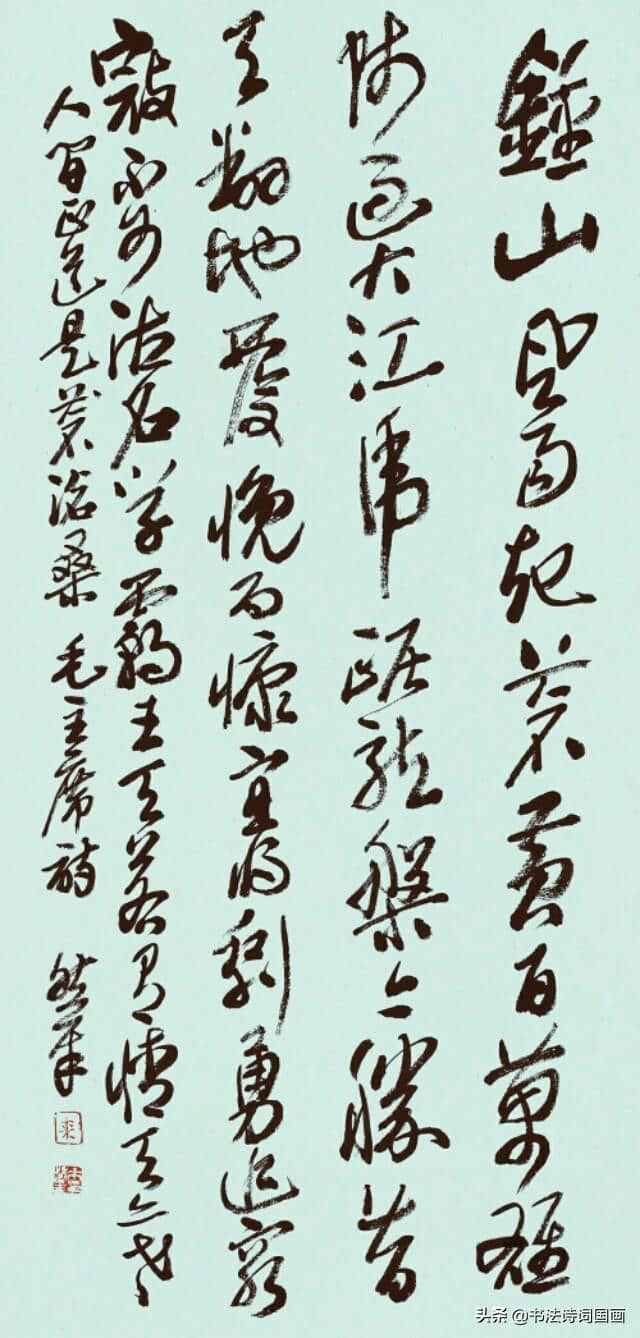 鍾山風雨起蒼黄百萬雄
師過大江虎踞龍盤今勝昔
天翻地覆慨而慷宜將剩勇追窮
寇不可沽名學霸王天若有情天亦老
人間正道是蒼滄桑 毛主席詩
头条 @书法诗词国画